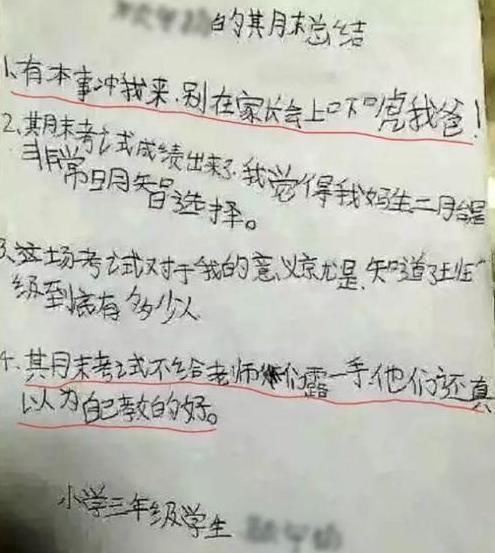 的其月末总结
1、有本事冲我来，别在家长会上口下口虎我爸！
2、其月末考试成绩出来了，我觉得我妈生二月台是
非常日月智选择。
3、这场考试对于我的意义京尤是，知道了班
级到底有多少人
4、其月末考试不给老师们露一手，他们还真
以为自己教的好。
小学三年级学生